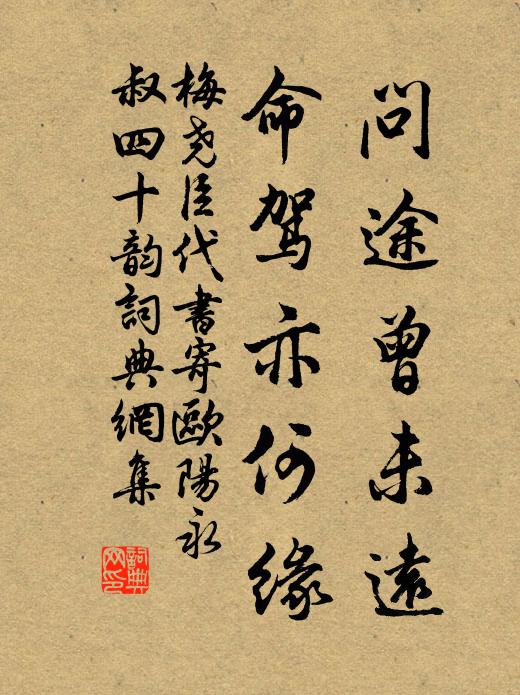 問途曾未遠
命駕亦何緣
梅尧臣代書寄歐陽永
叔四十韵詞典網集
詞典
网印